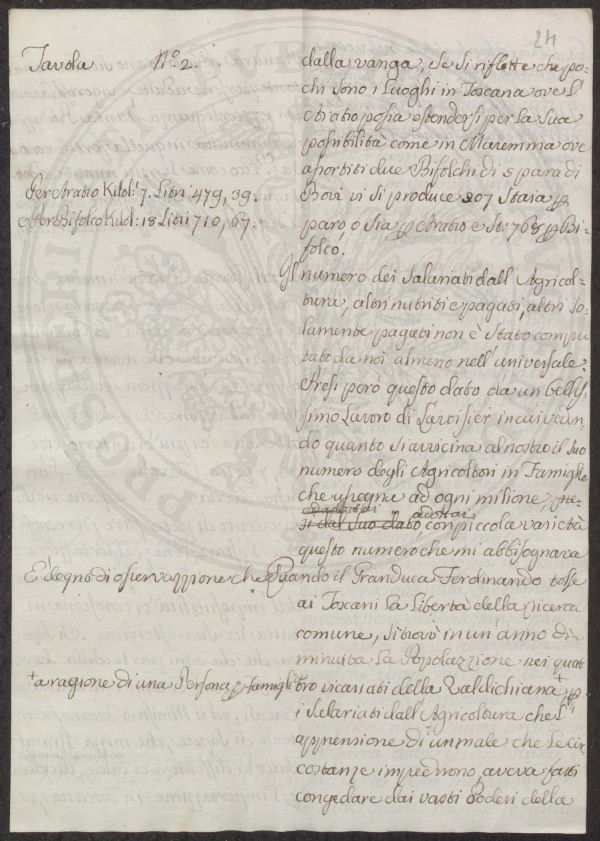 24
Tavola N.º 2.
dalla vanga, se si riflette che po-
chi sono i Luoghi in Toscana ove l'
Aratro possa estendersi per la sua
possibilità come in Maremma ove
assortiti due Bifolchi di 5 para di
Bovi vi si produce 207 Staia p
paro, o sia p Aratro e St: 768 p Bi-
folco.
Per Aratro Kilol: 7. Libri 479, 39.
e Per Bifolco Kilol: 18 Libri 710, 67.
Il numero dei Salariati dall'Agricol-
tura, altri nutriti e pagati, altri so-
lamente pagati non è stato compu
tato da noi almeno nell'universale.
Presi però questo dato da un bellis-
simo Lavoro di Lavoisier in cui veden
do quanto si avvicina al nostro il suo
numero degli Agricoltori in Famiglie
che assegna ad ogni milione,
adottai
con piccola varietà
questo numero che mi abbisognava
È degno di osservazzione che Quando il Granduca Ferdinando tolse
ai Toscani la Libertà della ricerca
comune, si trovò in un'anno di-
minuita la Popolazzione nei quat
tro vicariati della Valdichiana + p
+ a ragione di una Persona p famiglia
i Salariati dall'Agricoltura che l'
apprensione di un male che le Cir-
costanze impred̃ono, aveva fatti
congedare dai vasti Poderi della